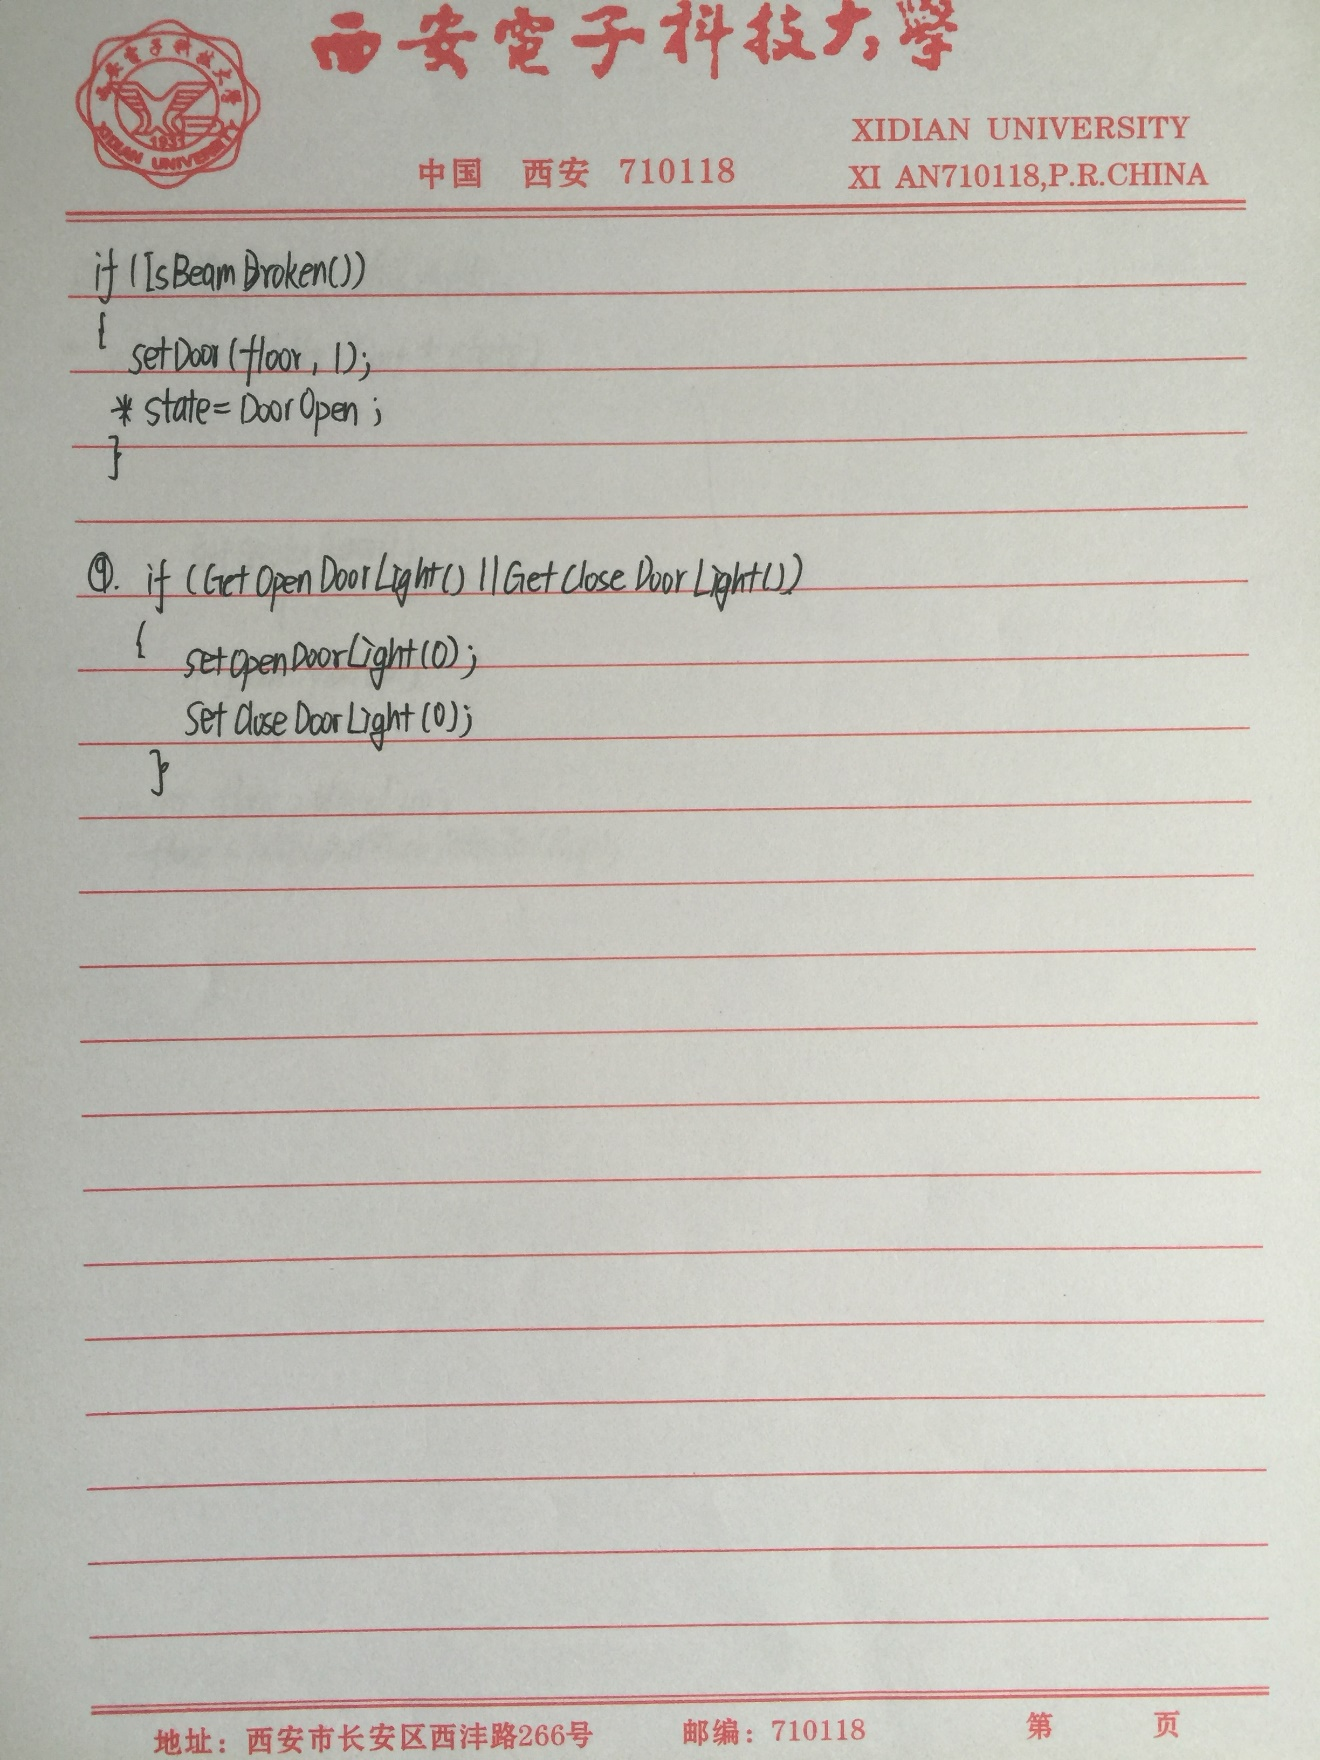 西安電子科技大學
西安電子科技大學
1931
XIDIAN UNIVERSITY
XIDIAN UNIVERSITY
中国 西安 710118
XI AN710118,P.R.CHINA
if (IsBeamBroken())
{
setDoor(floor, 1);
* state = DoorOpen;
}
⑨. if (GetOpenDoorLight() || GetCloseDoorLight())
{
setOpenDoorLight(0);
SetCloseDoorLight(0);
}
地址: 西安市长安区西沣路266号 邮编: 710118 第 页